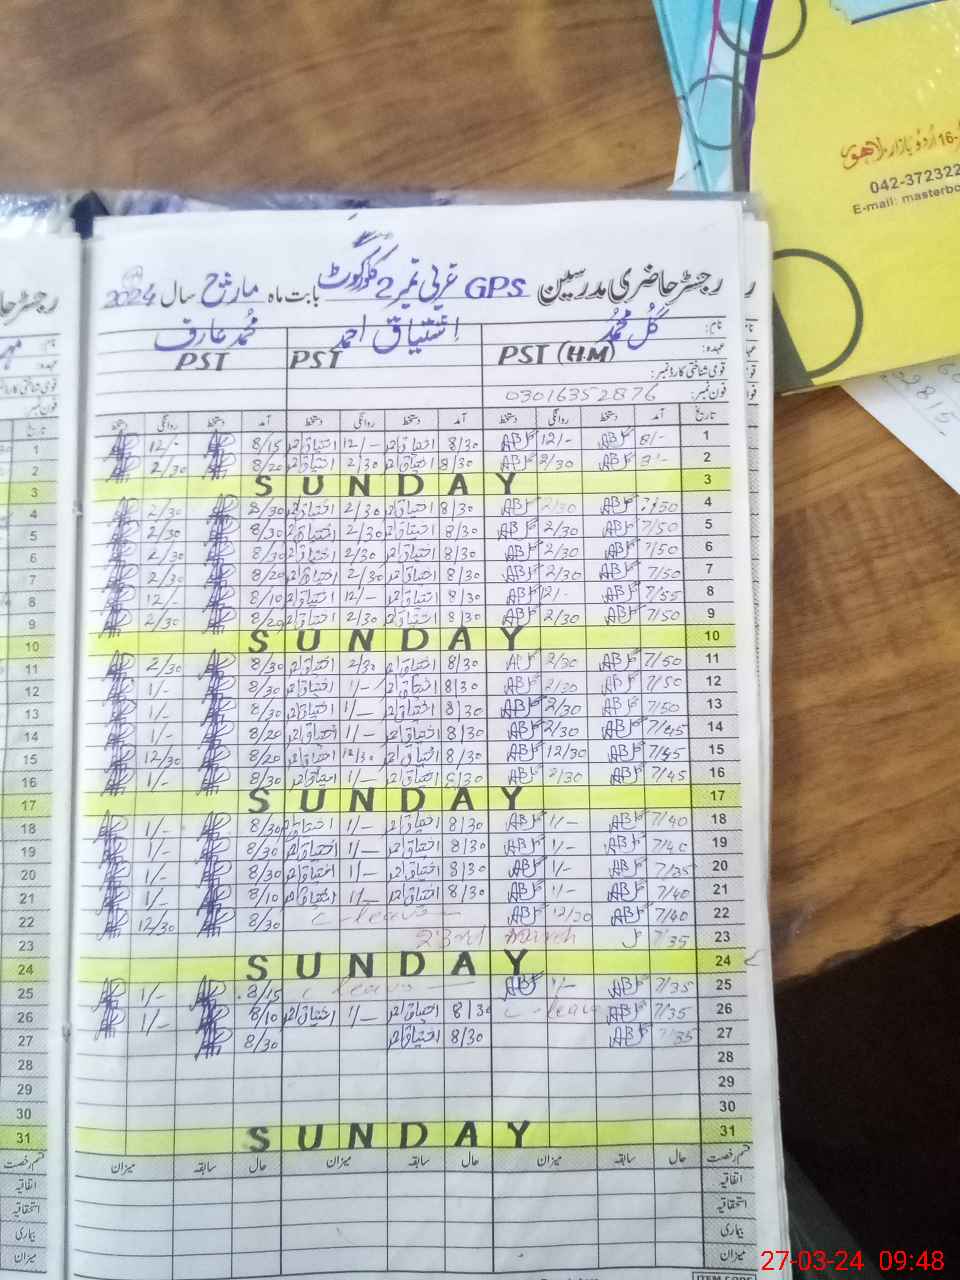 16-اُردو بازار، لاہور
042-37232
E-mail: masterbo
رجسٹر حاضری مدرسین GPS غربی نمبر 2 کلورکوٹ بابت ماہ مارچ سال 2024
نام: گل محمد اشتیاق احمد محمد عارف
عہدہ: PST (H.M) PST PST
قومی شناختی کارڈ نمبر:
فون نمبر: 03016352876
تاریخ آمد دستخط روانگی دستخط آمد دستخط روانگی دستخط آمد دستخط روانگی دستخط
1 8/- 12/- 8/30 اشتیاق احمد 12/- اشتیاق احمد 8/15 12/-
2 2/30 8/30 اشتیاق احمد 2/30 اشتیاق احمد 8/20 2/30
3 SUNDAY
4 7/50 2/30 8/30 اشتیاق احمد 2/30 اشتیاق احمد 8/30 2/30
5 7/50 2/30 8/30 اشتیاق احمد 2/30 اشتیاق احمد 8/30 2/30
6 7/50 2/30 8/30 اشتیاق احمد 2/30 اشتیاق احمد 8/30 2/30
7 7/50 2/30 8/30 اشتیاق احمد 2/30 اشتیاق احمد 8/20 2/30
8 7/55 12/- 8/30 اشتیاق احمد 12/- اشتیاق احمد 8/10 12/-
9 7/50 2/30 8/30 اشتیاق احمد 2/30 اشتیاق احمد 8/20 2/30
10 SUNDAY
11 7/50 2/30 8/30 اشتیاق احمد 2/30 اشتیاق احمد 8/30 2/30
12 7/50 2/30 8/30 اشتیاق احمد 1/- اشتیاق احمد 8/30 1/-
13 7/50 2/30 8/30 اشتیاق احمد 1/- اشتیاق احمد 8/30 1/-
14 7/45 2/30 8/30 اشتیاق احمد 1/- اشتیاق احمد 8/20 1/-
15 7/45 12/30 8/30 اشتیاق احمد 12/30 اشتیاق احمد 8/20 12/30
16 7/45 2/30 8/30 اشتیاق احمد 1/- اشتیاق احمد 8/30 1/-
17 SUNDAY
18 7/40 1/- 8/30 اشتیاق احمد 1/- اشتیاق احمد 8/30 1/-
19 7/40 1/- 8/30 اشتیاق احمد 1/- اشتیاق احمد 8/30 1/-
20 7/35 1/- 8/30 اشتیاق احمد 1/- اشتیاق احمد 8/30 1/-
21 7/40 1/- 8/30 اشتیاق احمد 1/- اشتیاق احمد 8/10 1/-
22 7/40 12/30 C-leave 8/30 12/30
23 7/35 23rd March
24 SUNDAY
25 7/35 1/- C leave 8/15 1/-
26 7/35 C-leave 8/30 اشتیاق احمد 1/- اشتیاق احمد 8/10 1/-
27 7/35 8/30 اشتیاق احمد 8/30
28
29
30
31 SUNDAY
قسم رخصت حال سابقہ میزان حال سابقہ میزان حال سابقہ میزان
اتفاقیہ
استحقاقیہ
بیماری
میزان
ITEM CODE
27-03-24 09:48